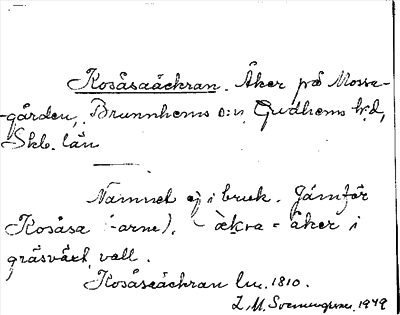 Kosåsaäckran. Åker på Mossa-
gården, Brunnhems s:n, Gudhems hd,
Skb. län
Namnet ej i bruk. Jämför
Kosåsa (-arne). - äkra = åker i
gräsväxt, vall.
Kosåsaäckran lm. 1810.
L. M. Svenungsson. 1949